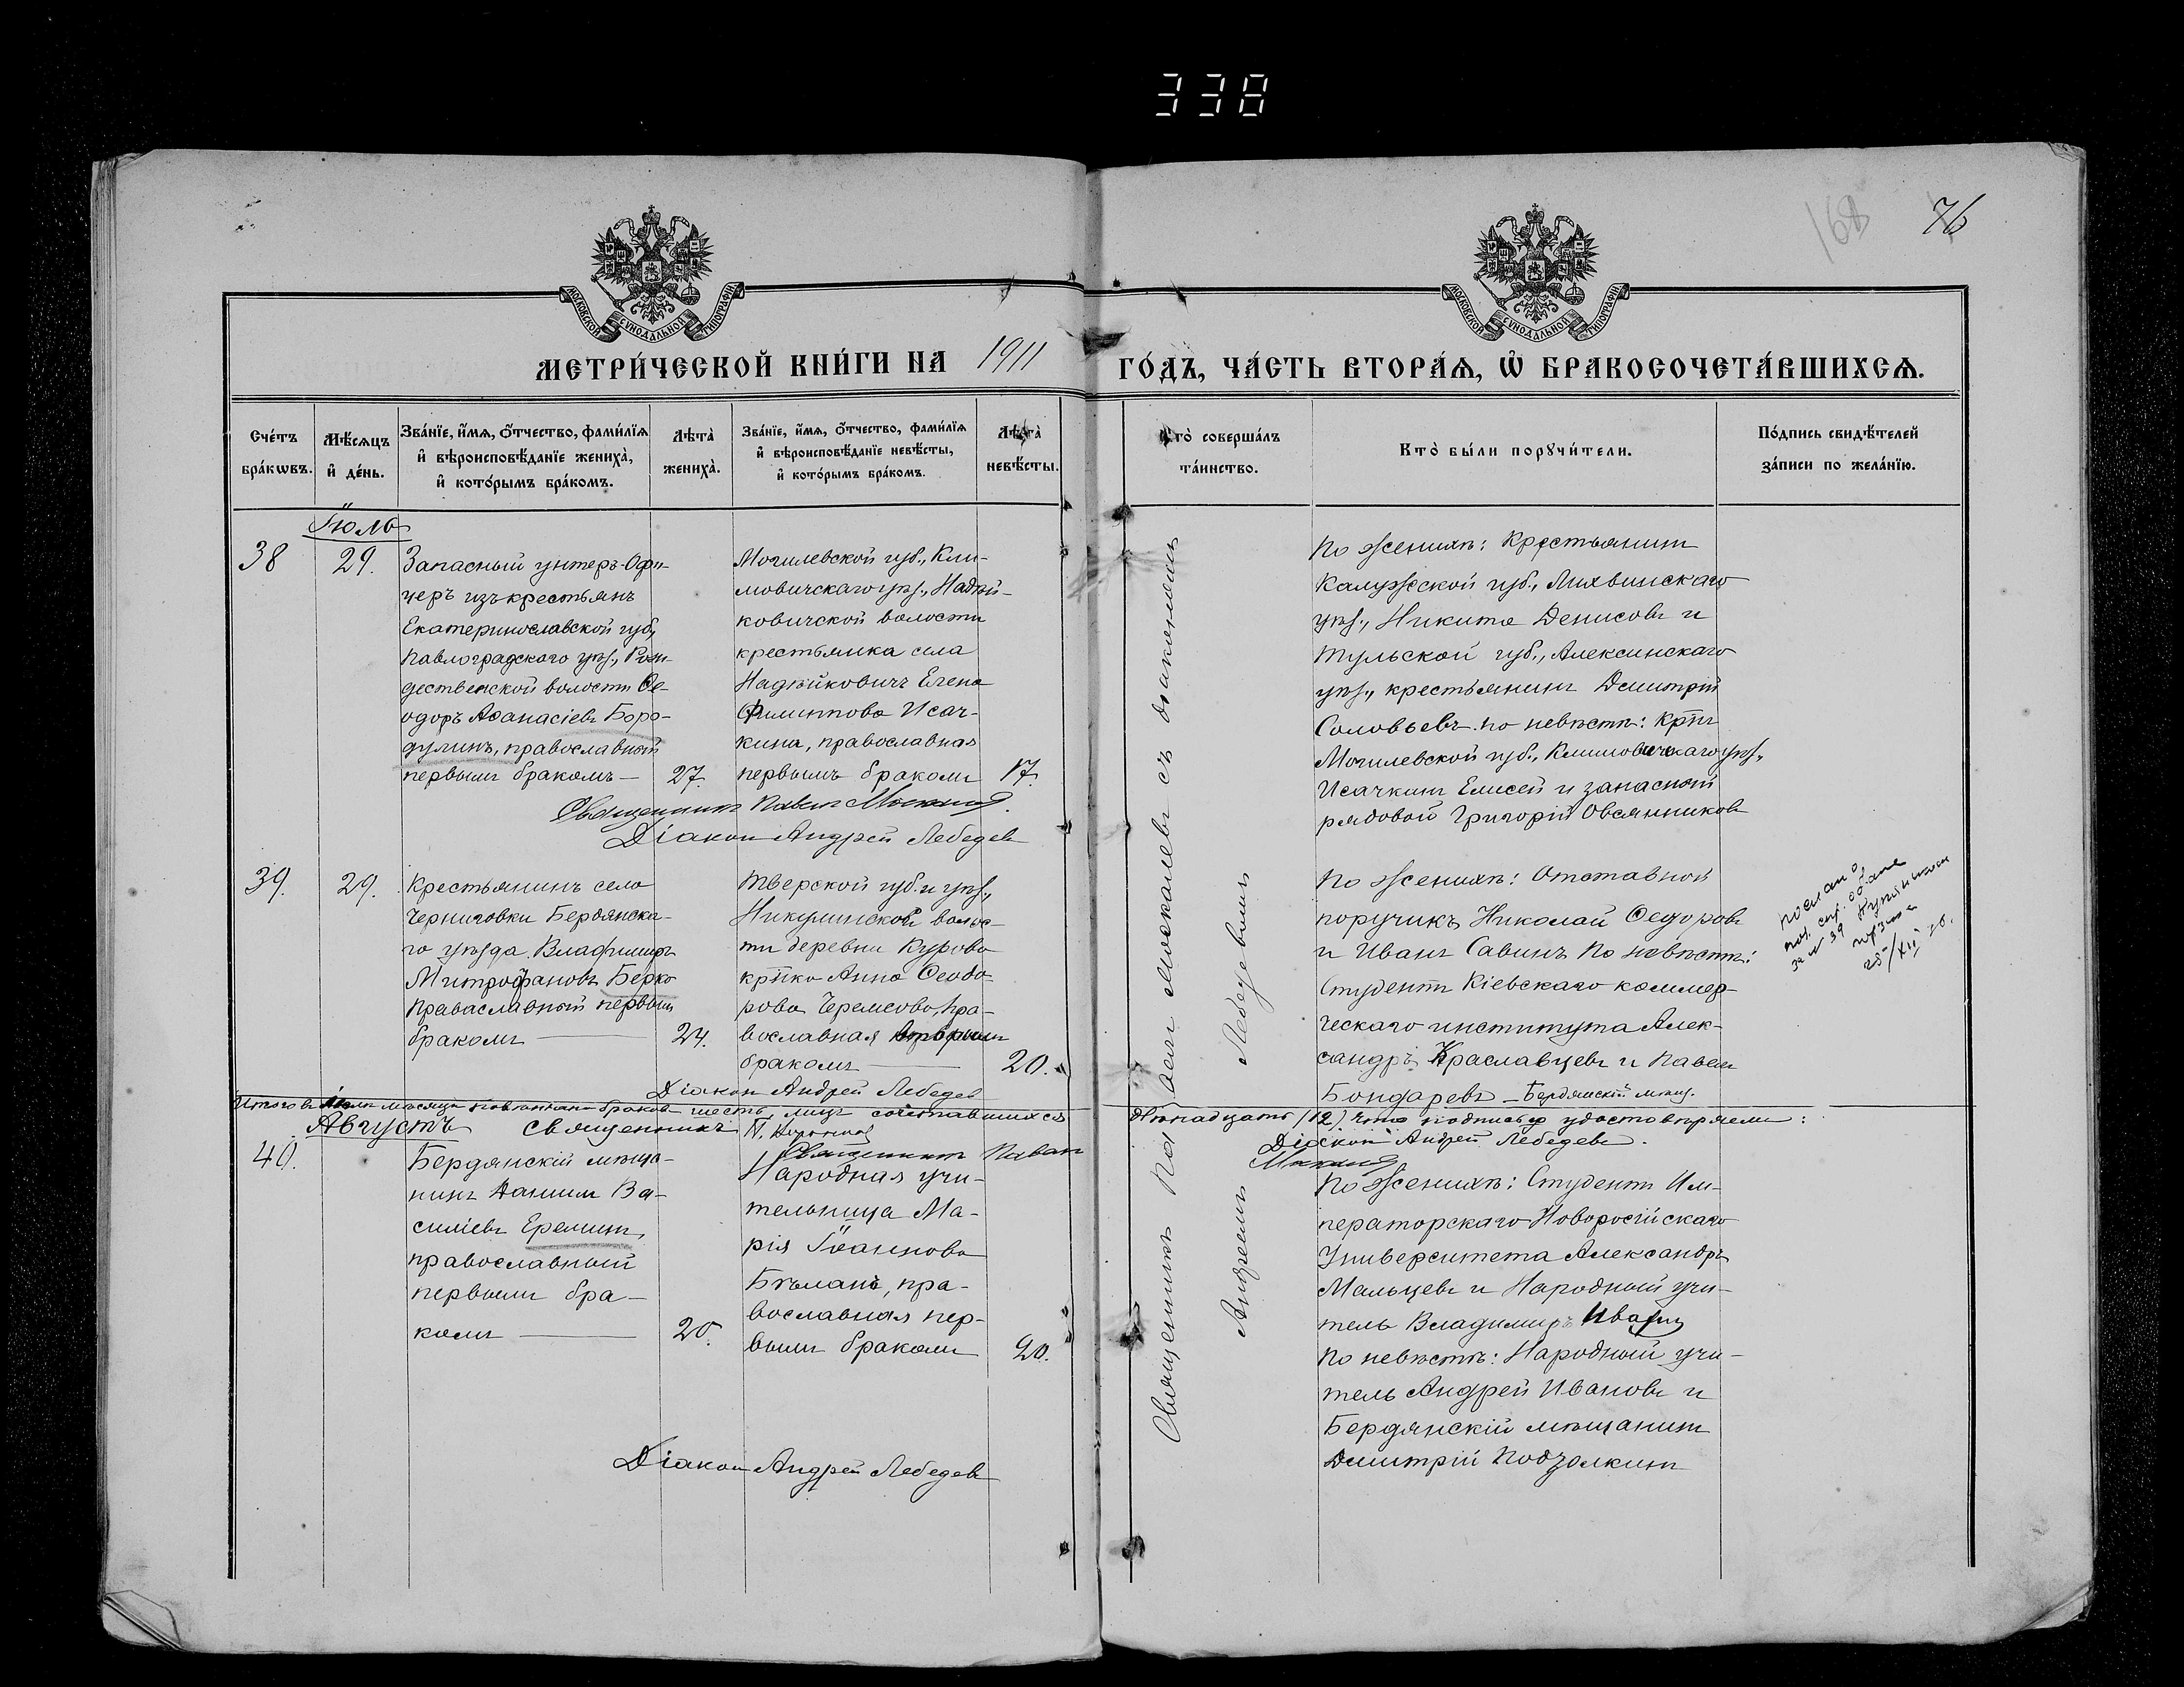 338
168
76
МОСКОВСКОЙ СУНОДАЛЬНОЙ ТИПОГРАФІИ
МОСКОВСКОЙ СУНОДАЛЬНОЙ ТИПОГРАФІИ
МЕТРИ́ЧЕСКОЙ КНИ́ГИ НА 1911 ГО́ДЪ, ЧА́СТЬ ВТОРА́Ѧ, Ѡ҆ БРАКОСОЧЕТА́ВШИХСѦ.
Сче́тъ бра́кѡвъ.
Мѣ́сяцъ и҆ де́нь.
Зва́нїе, и҆́мѧ, ѻ҆́тчество, фами́лїѧ
и҆ вѣроисповѣ́данїе жениха̀,
и҆ кото́рымъ бра́комъ.
Лѣта̀ жениха̀.
Зва́нїе, и҆́мѧ, ѻ҆́тчество, фами́лїѧ
и҆ вѣроисповѣ́данїе невѣ́сты,
и҆ кото́рымъ бра́комъ.
Лѣта̀ невѣ́сты.
Кто̀ соверша́лъ та́инство.
Кто̀ бы́ли порꙋчи́тели.
По́дпись свидѣ́телей
за́писи по жела́нїю.
Іюль
38
29.
Запасный унтеръ-Офи-
церъ изъ крестьянъ
Екатеринославской губ.,
Павлоградскаго уѣз., Рож-
дественской волости Ѳе-
одоръ Аѳанасіевъ Боро-
дулинъ, православный
первымъ бракомъ —
27.
Могилевской губ., Кли-
мовичскаго уѣз., Надѣй-
ковичской волости
крестьянка села
Надѣйковичъ Елена
Филиппова Исач-
кина, православная
первымъ бракомъ
17.
Священникъ Павелъ
Діаконъ Андрей Лебедев
По женихѣ: Крестьянинъ
Калужской губ., Лихвинскаго
уѣз., Никита Денисовъ и
Тульской губ., Алексинскаго
уѣз., крестьянинъ Димитрій
Соловьевъ. по невѣстѣ: Крт̃нъ
Могилевской губ., Климовичскаго уѣз.,
Исачкинъ Елисей и запасный
рядовой Григорій Овсянниковъ
39.
29.
Крестьянинъ села
Черниговки Бердянска-
го уѣзда Владимиръ
Митрофановъ Берко
Православный первымъ
бракомъ —
24.
Тверской губ. и уѣз.,
Никулинской волос-
ти деревни Курово
крт̃нка Анна Ѳеодо-
рова Черемсова, пра-
вославная вторымъ
бракомъ —
20.
Діаконъ Андрей Лебедев
По женихѣ: Отставной
поручикъ Николай Ѳедоровъ
и Иванъ Савинъ По невѣстѣ:
Студентъ Кіевскаго коммер-
ческаго института Алек-
сандръ Краславцевъ и Павелъ
Бондаревъ – Бердянскій мѣщ.
послано
за № 39
Итого въ Іюлѣ мѣсяцѣ браковъ шесть, лицъ сочетавшихся двѣнадцать (12), что подписью удостовѣряемъ:
Священникъ Павел
Діаконъ Андрей Лебедевъ.
Августъ
40.
Бердянскій мѣща-
нинъ Даніилъ Ва-
силіевъ Ереминъ,
православный
первымъ бра-
комъ —
20.
Народная учи-
тельница Ма-
рія Іоаннова
Бѣлань, пра-
вославная пер-
вымъ бракомъ
20.
Діаконъ Андрей Лебедев
По женихѣ: Студентъ Им-
ператорскаго Новоросійскаго
Университета Александръ
Мальцевъ и Народный учи-
тель Владимиръ
По невѣстѣ: Народный учи-
тель Андрей Ивановъ и
Бердянскій мѣщанинъ
Димитрій Подзолкинъ
Священникъ Павелъ Москалевъ съ діакономъ
Андреемъ Лебедевымъ